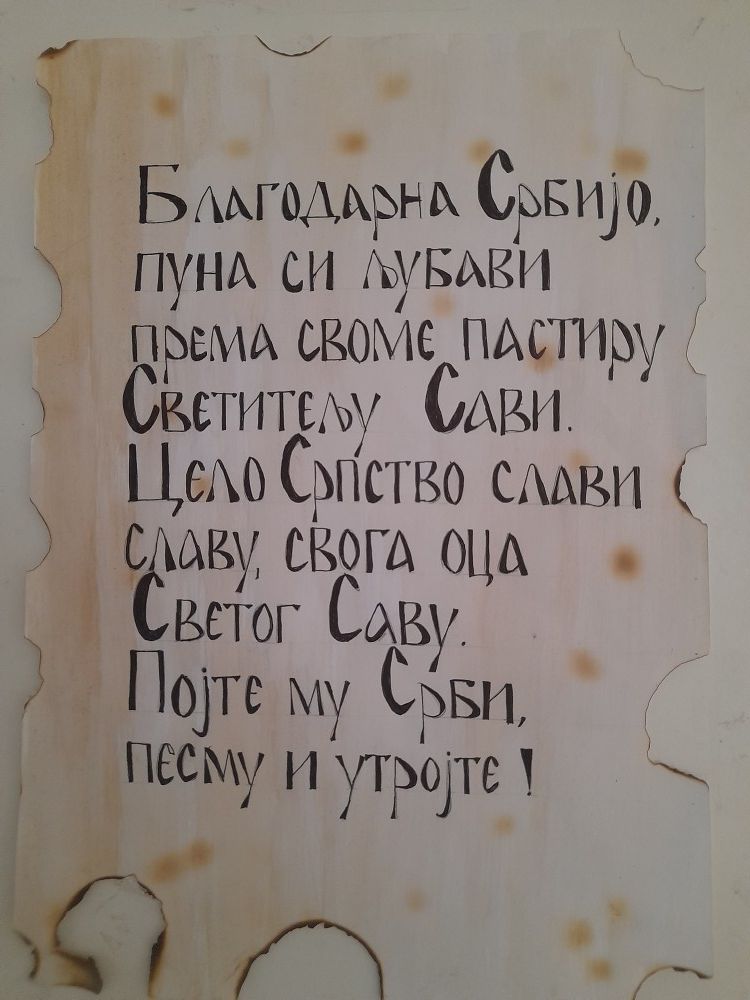 Благодарна Србијо,
пуна си љубави
према своме пастиру
Светитељу Сави.
Цело Српство слави
славу, свога оца
Светог Саву.
Појте му Срби,
песму и утројте!